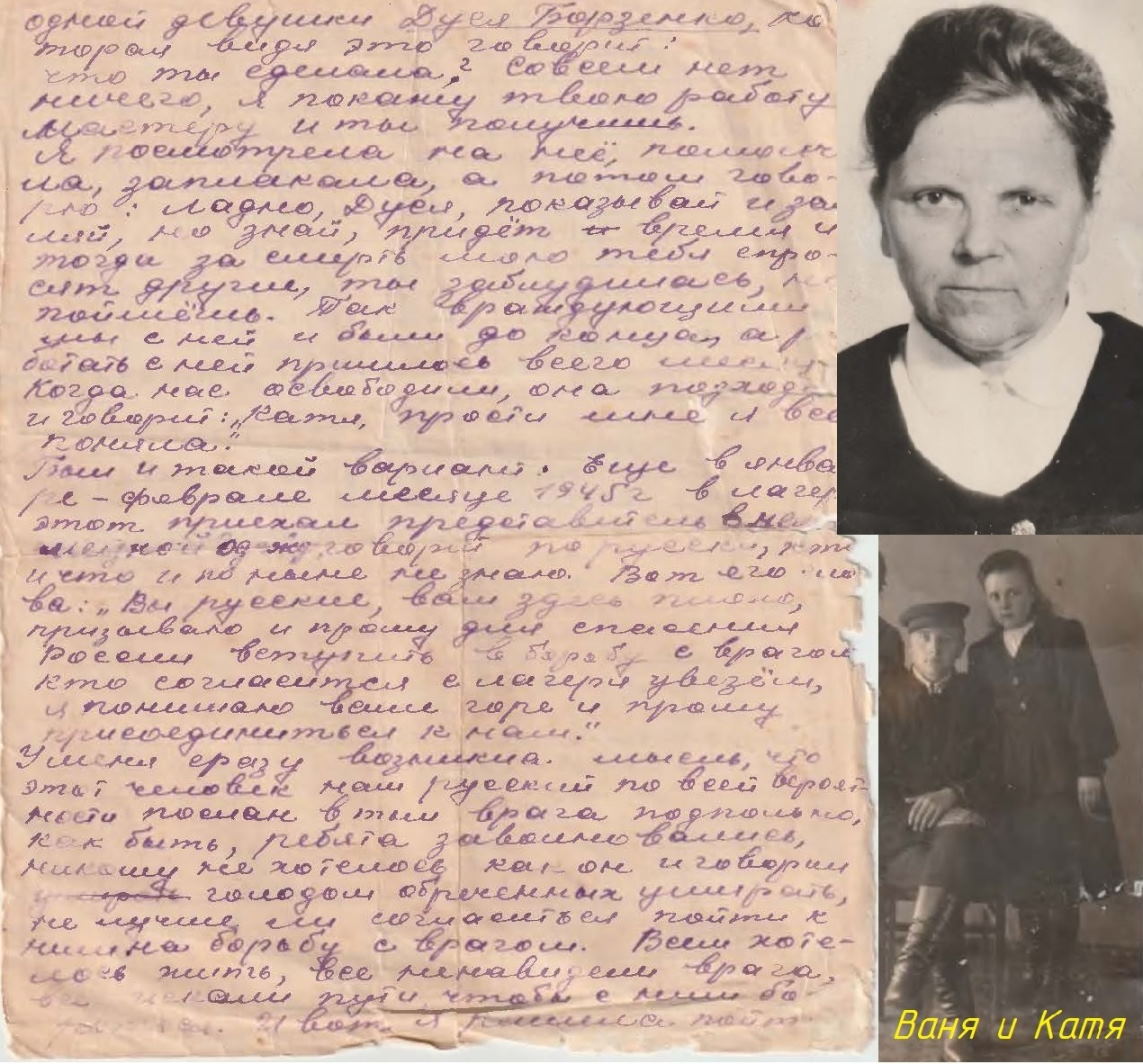 одной девушки Дуся Борзенко, ко
торая видя это говорит:
что ты сделала? Совсем нет
ничего, я покажу твою работу
мастеру и ты получишь.
Я посмотрела на неё, помолч
ла, заплакала, а потом гово-
рю: ладно, Дуся, показывай и
ляй, но знай, придёт время и
тогда за смерть мою тебя спро-
сят другие, ты заблудилась, но
поймёшь. Так враждующими
мы с ней и были до конца, а р
ботать с ней пришлось всего
Когда нас освободили, она
и говорит: „Катя, прости мне я все
поняла."
Был и такой вариант. Еще в янва
ре-феврале месяце 1945 г в лагерь
этот приехал представитель в
говорит по русски, кто
и что и по ныне не знаю. Вот его
ва: „Вы русские, вам здесь плохо,
призываю и прошу для спасения
России вступить в борьбу с врагом
кто согласится с лагеря увезём,
я понимаю ваше горе и прошу
присоединиться к нам."
У меня сразу возникла мысль, что
этот человек наш русский по всей вероят
ности послан в тыл врага подпольно,
как быть, ребята заволновались,
никому не хотелось как он и говорил
голодом обреченных умирать,
не лучше ли согласиться пойти к
ним на борьбу с врагом. Всем хоте-
лось жить, все ненавидели врага,
все искали пути, чтобы с ним бо-
И вот я решила пойти
Ваня и Катя